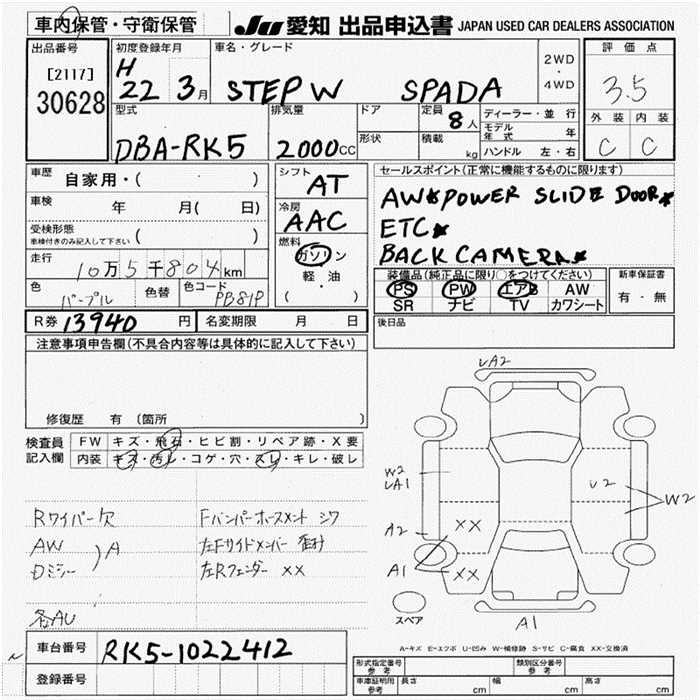 車内保管・守衛保管
JU 愛知 出品申込書 JAPAN USED CAR DEALERS ASSOCIATION
出品番号
[2117]
30628
初度登録年月
H
22 3月
車名・グレード
STEP W SPADA
2WD
・
4WD
評価点
3.5
外装 内装
C C
型式
DBA-RK5
排気量
2000cc
ドア
形状
定員
8人
積載
kg
ディーラー・並 行
モデル年式 年
ハンドル 左・右
車歴 自家用・( )
車検 年 月( 日)
受検形態
車検付きのみ記入して下さい ( )
走行 10万5千804km
色 パープル 色替 色コード PB81P
シフト
AT
冷房
AAC
燃料
ガソリン
・
軽・油
( )
セールスポイント(正常に機能するものに限ります)
AW★POWER SLIDE DOOR★
ETC★
BACK CAMERA★
装備品(純正品に限り○をつけてください)
PS PW エアB AW
SR ナビ TV カワシート
新車保証書
有・無
R券 13940円 名変期限 月 日
後日品
注意事項申告欄(不具合内容等は具体的に記入して下さい)
修復歴 有 〔箇所 〕
検査員記入欄
FW キズ・飛石・ヒビ割・リペア跡・X要
内装 キズ・汚レ・コゲ・穴・スレ・キレ・破レ
Rワイパー欠
AW
Dミラー
A
各AU
Fバンパーホースメント シワ
左Fサイドメンバー
左Rフェンダー ××
UA2
W2
UA1
U2
W2
A2
××
A1
××
A1
スペア
A-キズ E-エクボ U-凹み W-補修跡 S-サビ C-腐食 XX-交換済
車台番号 RK5-1022412
登録番号
形式指定番号
参考
類別区分番号
参考
車庫証明用
参考
長さ cm 幅 cm 高さ cm